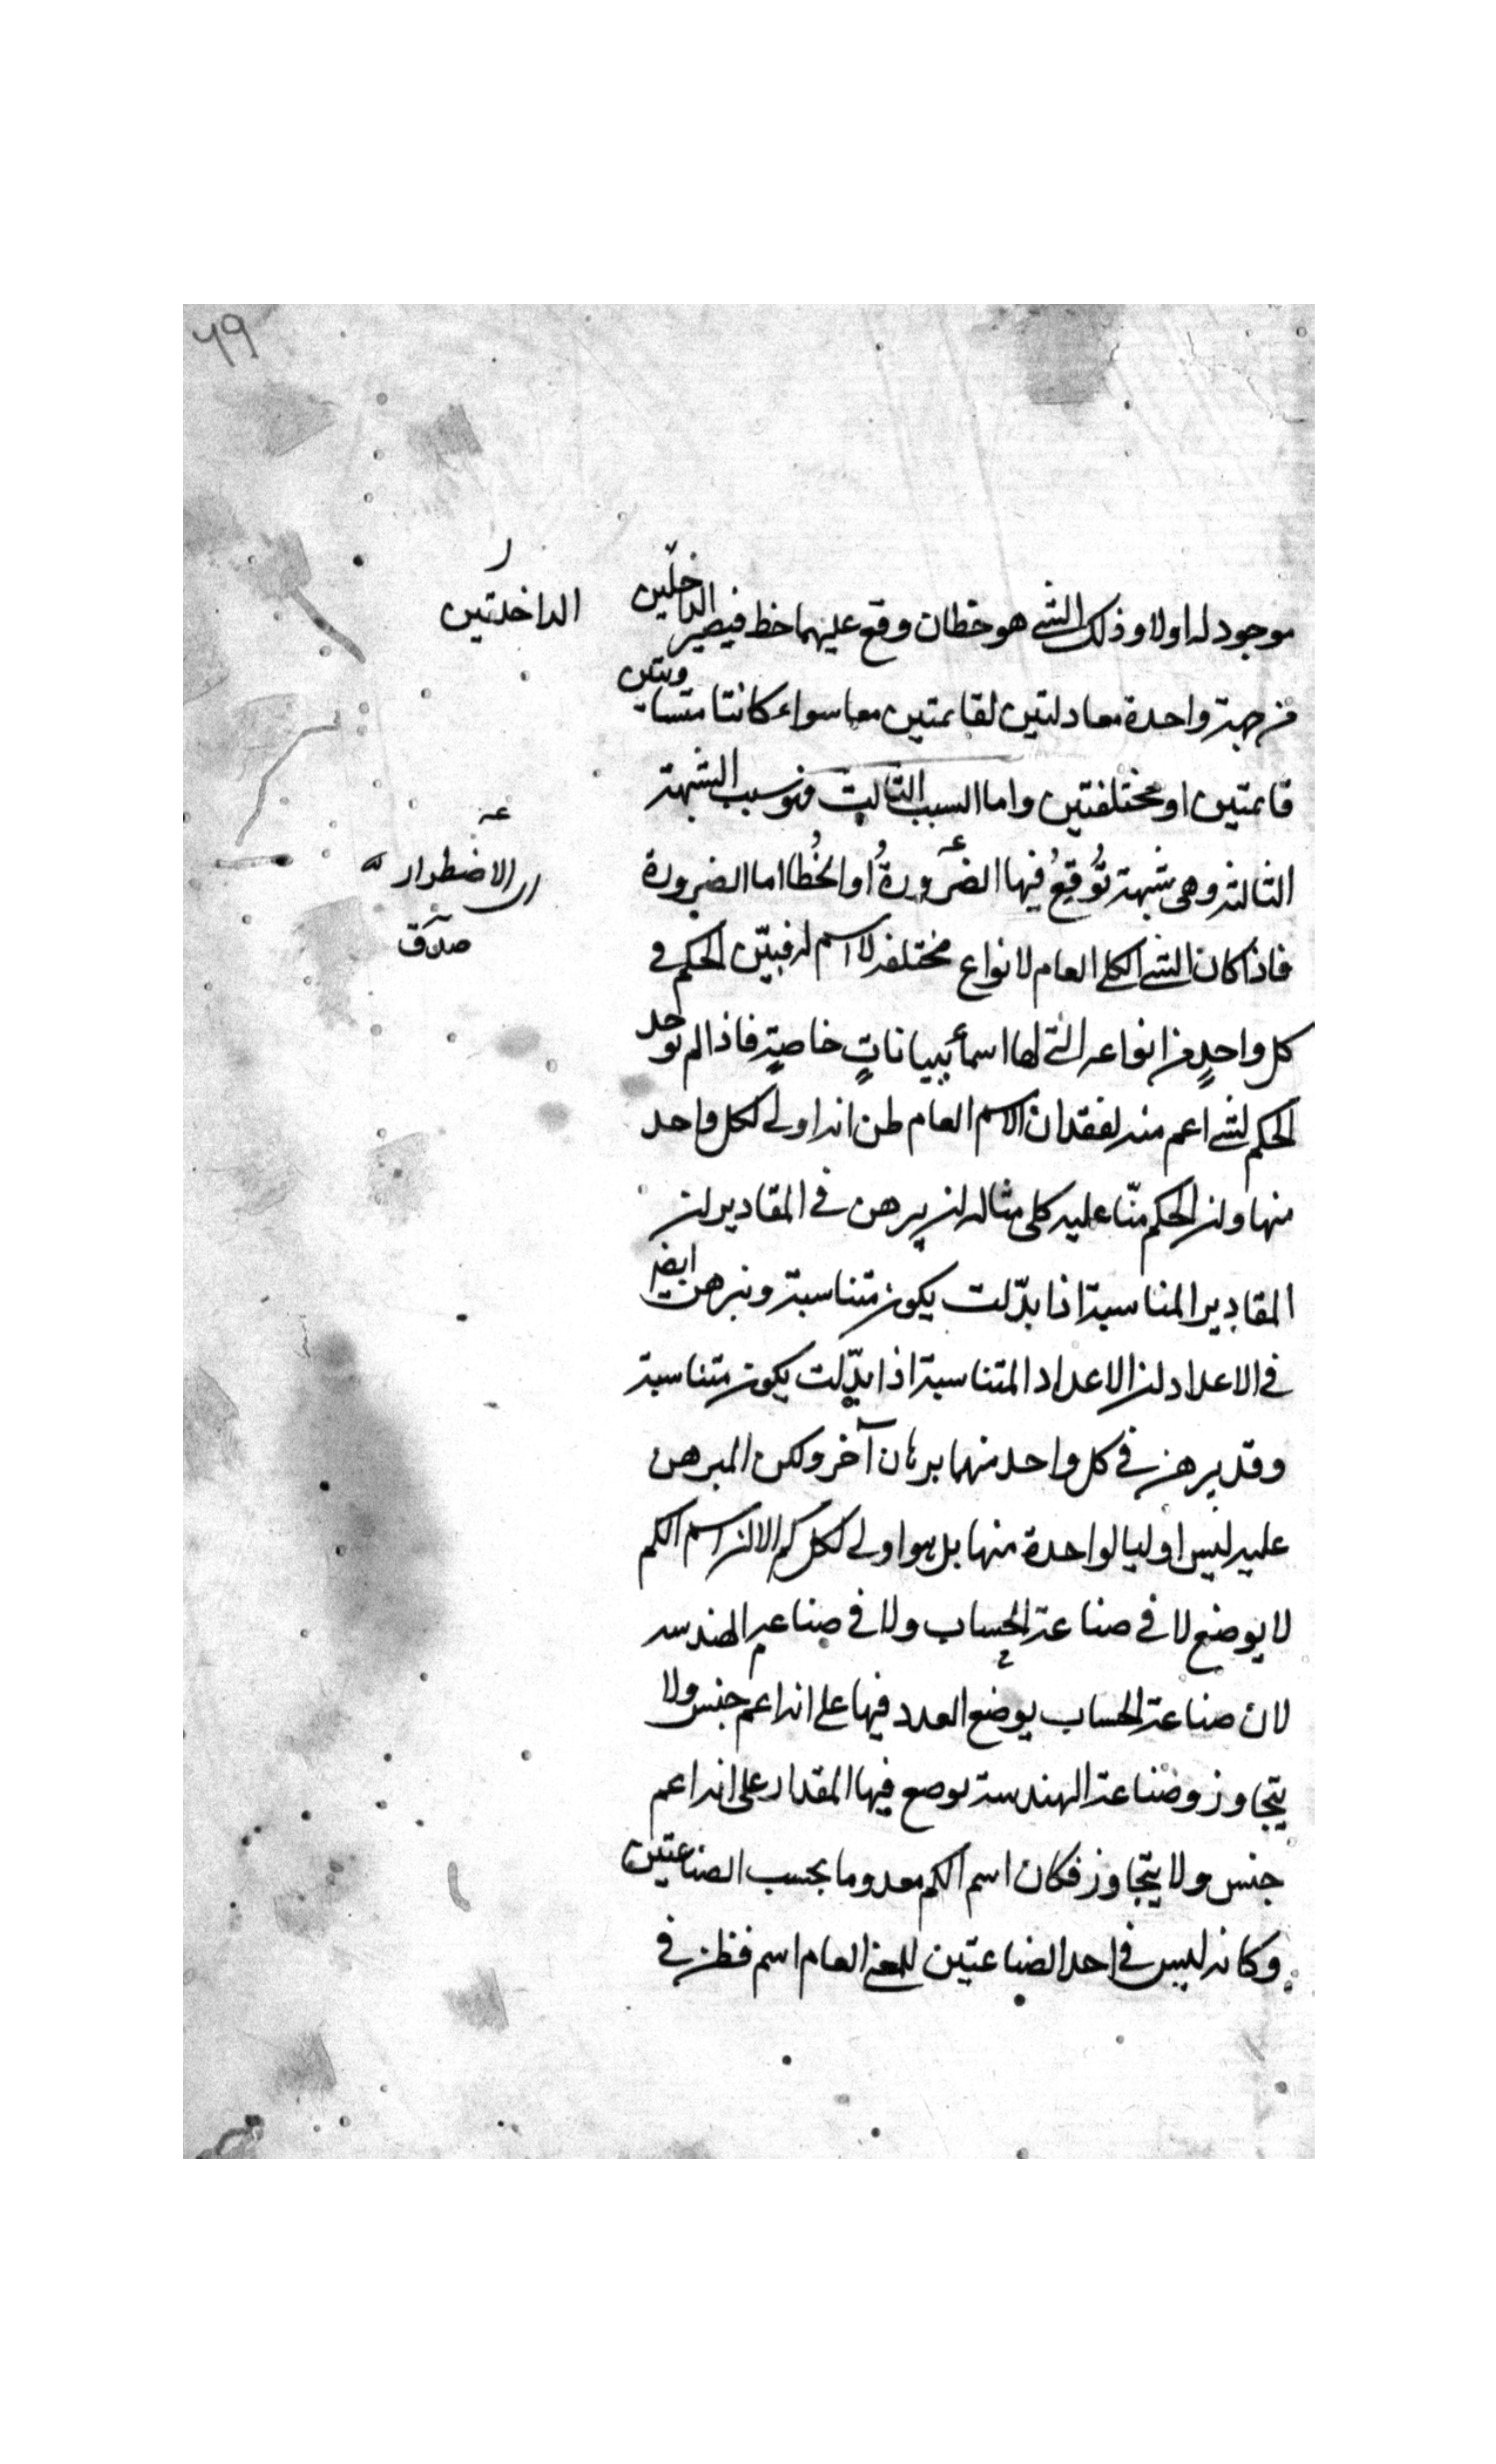 ٦٩
موجود له اولا وذلك الشئ هو خطان وقع عليهما خط فيصير الداخلتين
من جهة واحدة معادلتين لقايمتين معا سواء كانتا متساويتين
قايمتين او مختلفتين واما السبب الثالث فهو سبب الشبهة
الثالثة وهى شبهة تُوقِعُ فيها الضرورةُ او الخُطا اما الضرورة
فاذا كان الشئ الكلى العام لانواع مختلفة لا اسم له فبيّن الحكم فى
كل واحدٍ من انواعه التى لها اسماء ببياناتٍ خاصيةٍ فاذا لم يوجد
الحكم لشئ اعم منه لفقدان الاسم العام ظن انه اولى لكل واحد
منها وان الحكم منّا عليه كلى مثاله ان يرهن فى المقادير ان
المقادير المناسبة اذا بدّلت يكون متناسبة ويبرهن ايضا
فى الاعداد ان الاعداد المتناسبة اذا بدّلت يكون متناسبة
وقد يرهن فى كل واحد منهما برهان آخر ولكن المبرهن
عليه ليس اوليا لواحدة منها بل هو اولى لكل كم الا ان اسم الكم
لا يوضع لا فى صناعة الحساب ولا فى صناعة الهندسه
لان صناعة الحساب يوضع العدد فيها على انه اعم جنس ولا
يتجاوز وصناعة الهندسة يوضع فيها المقدار على انه اعم
جنس ولا يتجاوز فكان اسم الكم معدوما بحسب الصناعتين
وكانه ليس فى احد الصناعتين للمعنى العام اسم فظن فى
الداخلتين
اى الاضطرار
صدق